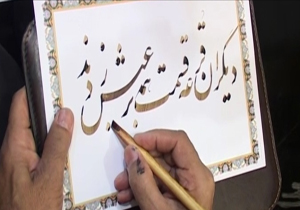 دیگران قرعه قسمت همه بر عیش زدند